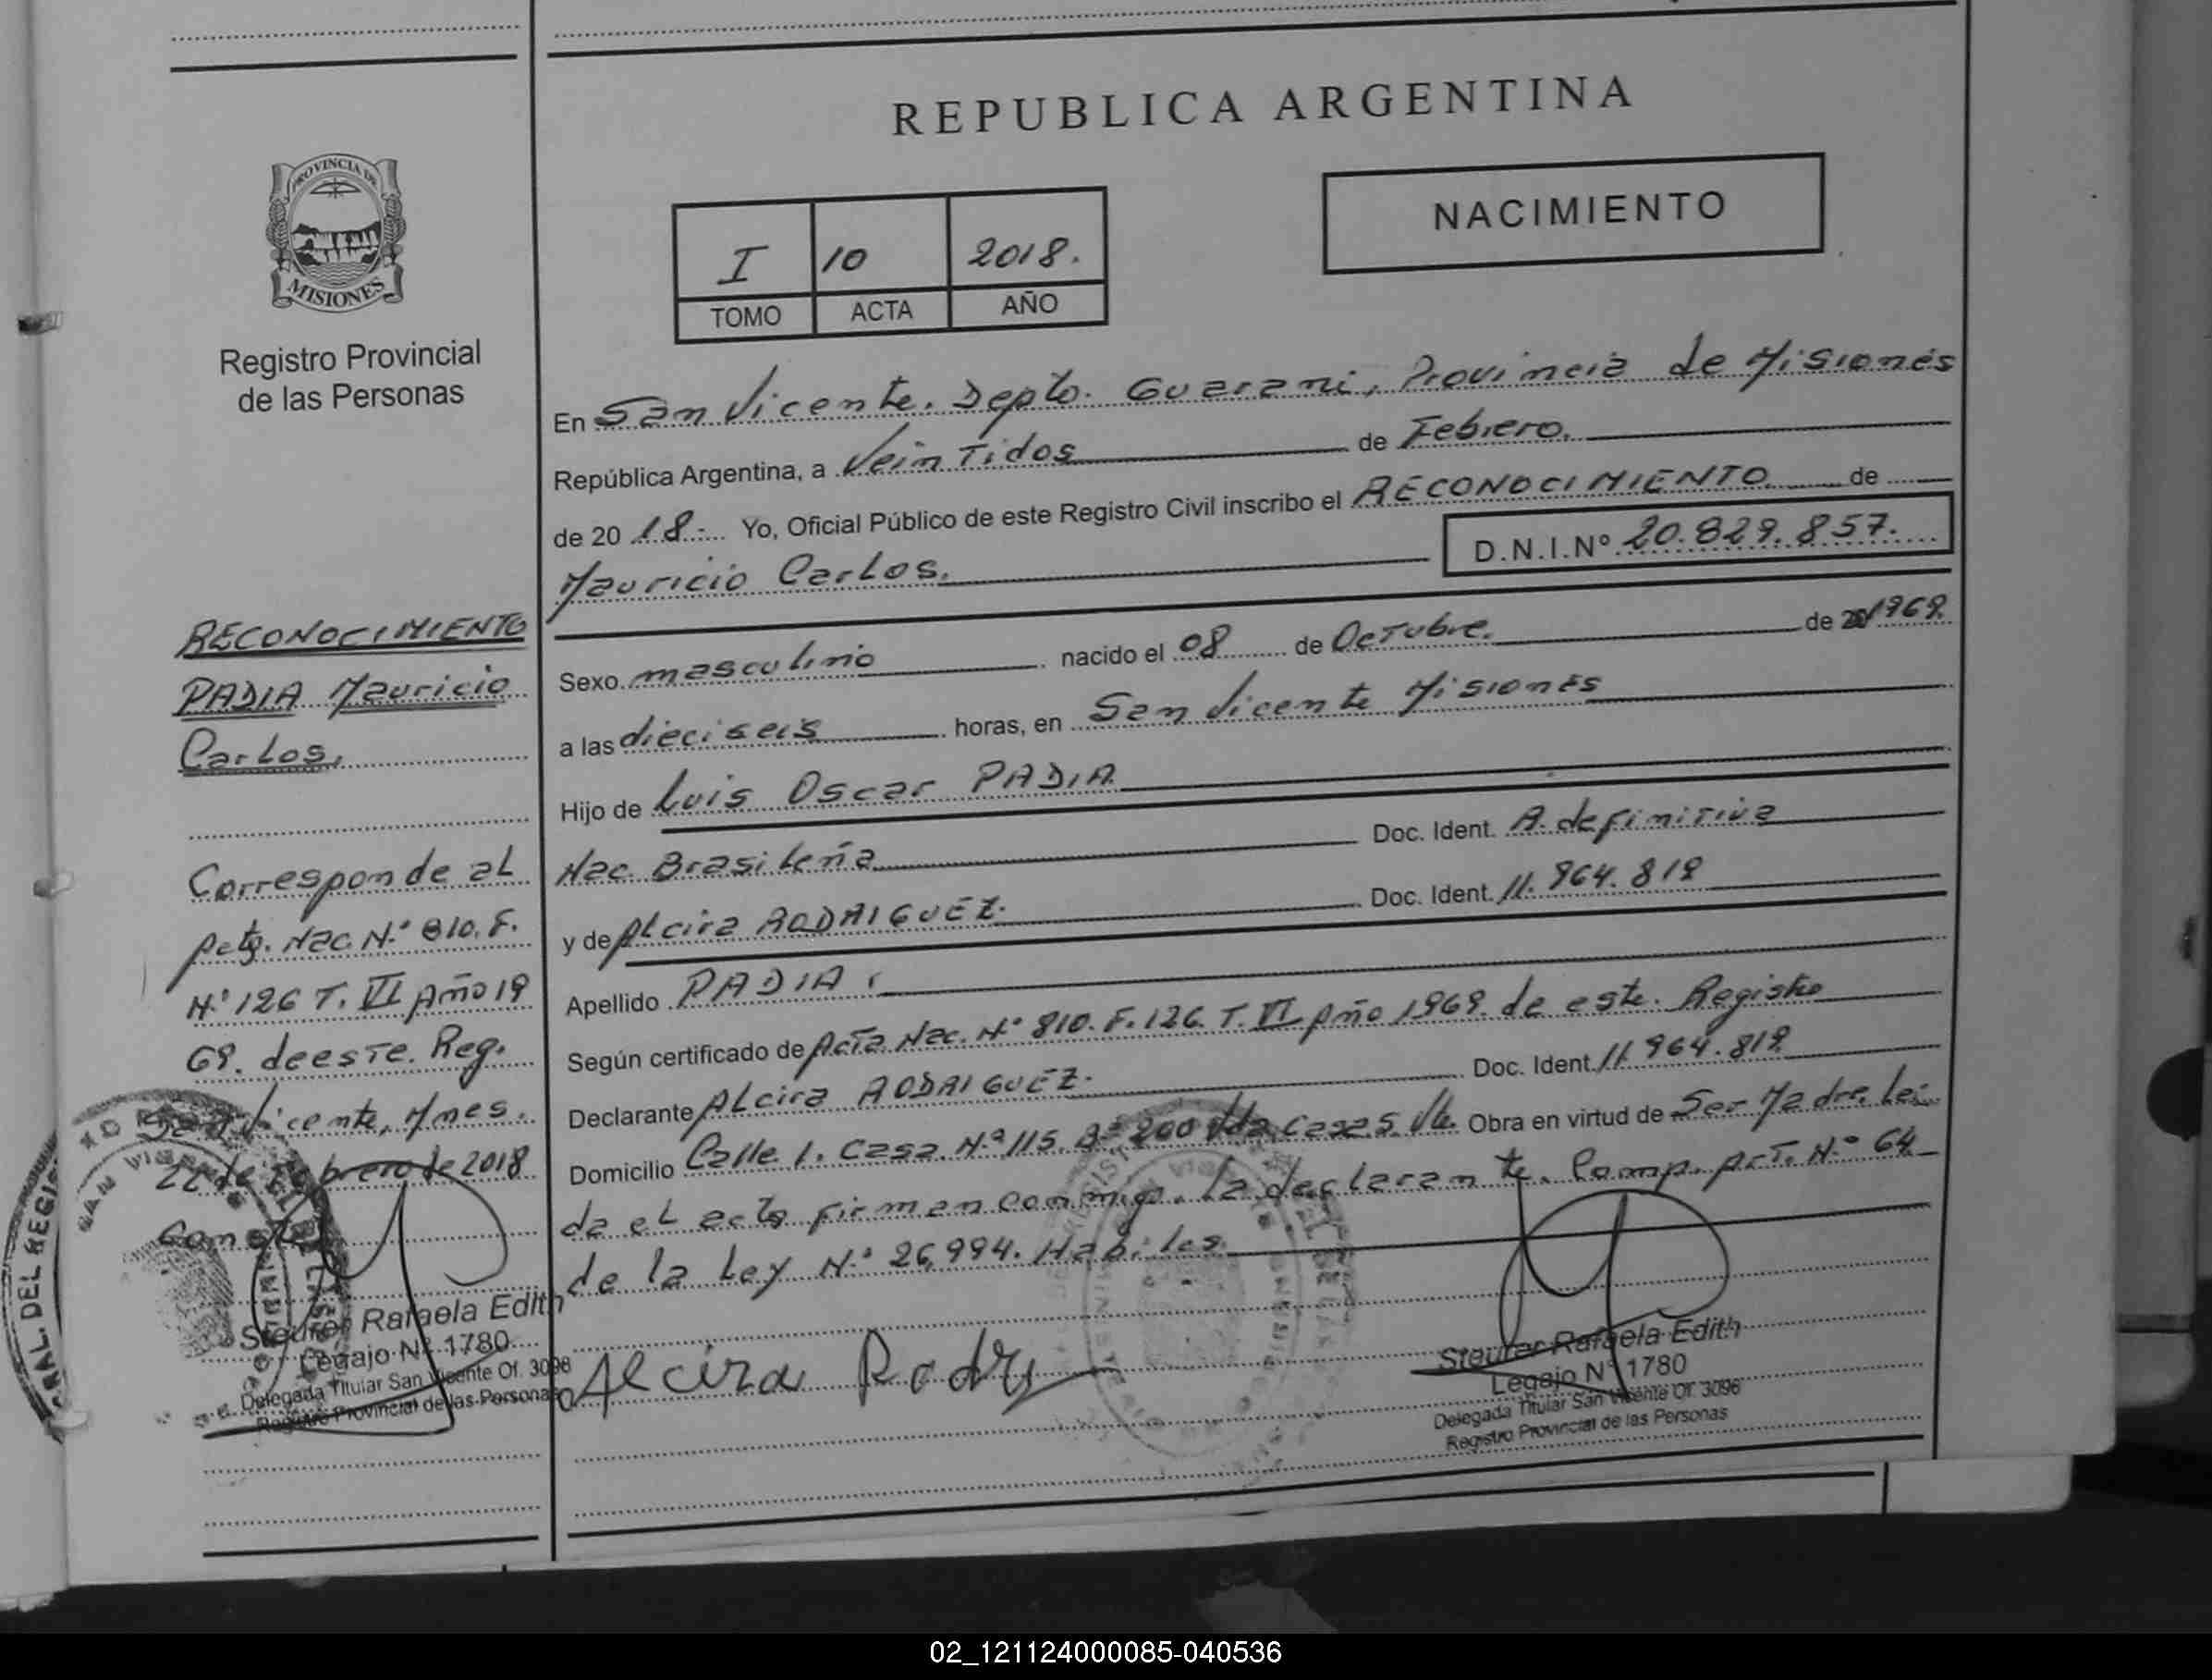 REPUBLICA ARGENTINA
NACIMIENTO
I 10 2018.
TOMO ACTA AÑO
PROVINCIA DE
MISIONES
Registro Provincial
de las Personas
RECONOCIMIENTO
PADIA Mauricio
Carlos.
Corresponde al
acta. Nac. N.° 810. F.
N.° 126 T. VI Año 19
69. de este. Reg.
San Vicente, Mnes.
22 de Febrero de 2018
Conste
Steurer Rafaela Edith
Legajo Nº 1780
Delegada Titular San Vicente Of. 3096
Registro Provincial de las Personas
En San Vicente. Depto. Guarani, Provincia de Misiones
República Argentina, a Veintidos de Febrero.
de 20 18.- Yo, Oficial Público de este Registro Civil inscribo el RECONOCIMIENTO de
Mauricio Carlos. D.N.I.Nº 20.829.857.
Sexo masculino nacido el 08 de Octubre. de 1969.
a las dieciseis horas, en San Vicente Misiones
Hijo de Luis Oscar PADIA
Nac. Brasileña Doc. Ident. A. definitiva
y de Alcira RODRIGUEZ. Doc. Ident. 11.964.819
Apellido PADIA.
Según certificado de Acta Nac. N° 810. F. 126. T. VI Año 1969. de este. Registro
Declarante Alcira RODRIGUEZ. Doc. Ident. 11.964.819
Domicilio Calle 1. Casa. N.° 115. B° 200 Casas. Obra en virtud de Ser Madre. Lei
da el acta firman conmigo. la declarante. Comp. Art. N.° 64
de la Ley N.° 26.994. Habiles
Alcira Rodr
Steurer Rafaela Edith
Legajo Nº 1780
Delegada Titular San Vicente Of. 3096
Registro Provincial de las Personas
02_121124000085-040536